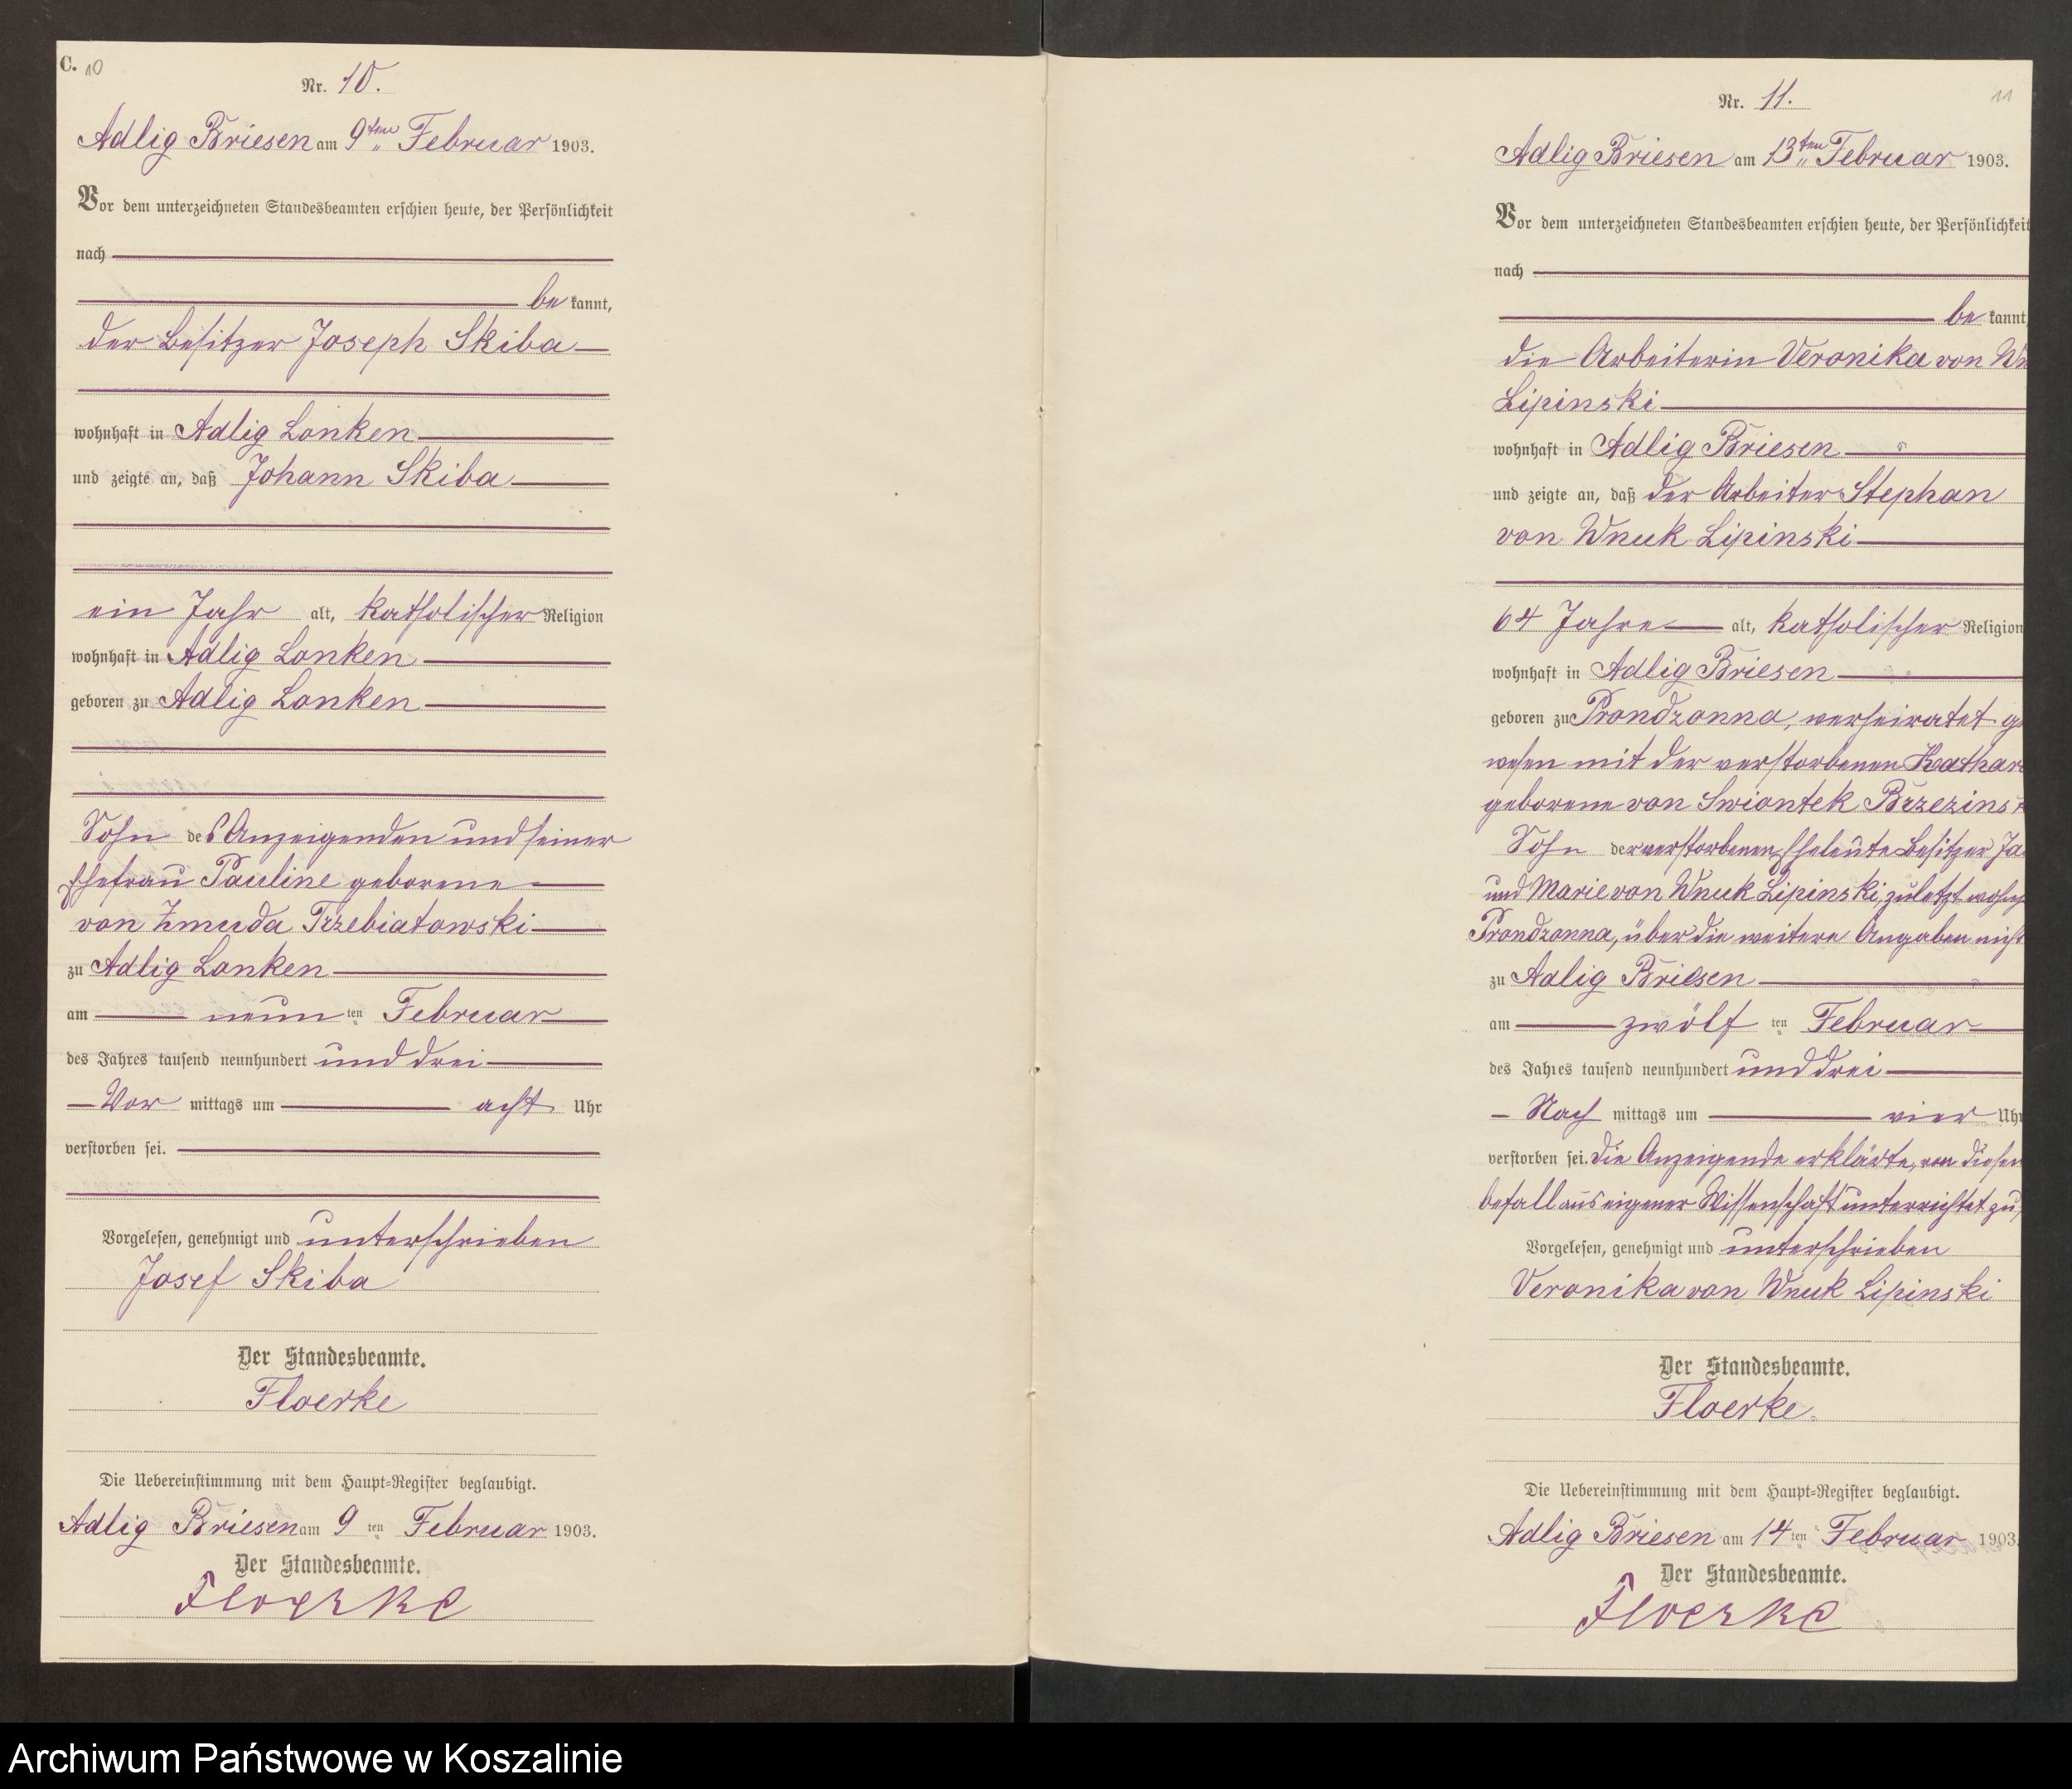 C. 10
Nr. 10.
Adlig Briesen am 9ten Februar 1903.
Vor dem unterzeichneten Standesbeamten erschien heute, der Persönlichkeit
nach
be kannt,
der Besitzer Joseph Skiba
wohnhaft in Adlig Lonken
und zeigte an, daß Johann Skiba
ein Jahr alt, katholischer Religion
wohnhaft in Adlig Lonken
geboren zu Adlig Lonken
Sohn des Anzeigenden und seiner
Ehefrau Pauline geborene
von Zmuda Trzebiatowski
zu Adlig Lonken
am neun ten Februar
des Jahres tausend neunhundert und drei
Vor mittags um acht Uhr
verstorben sei.
Vorgelesen, genehmigt und unterschrieben
Josef Skiba
Der Standesbeamte.
Floerke
Die Uebereinstimmung mit dem Haupt-Register beglaubigt.
Adlig Briesen am 9 ten Februar 1903.
Der Standesbeamte.
Floerke
11
Nr. 11.
Adlig Briesen am 13ten Februar 1903.
Vor dem unterzeichneten Standesbeamten erschien heute, der Persönlichkeit
nach
be kannt
die Arbeiterin Veronika von Wn
Lipinski
wohnhaft in Adlig Briesen
und zeigte an, daß der Arbeiter Stephan
von Wnuk Lipinski
64 Jahre alt, katholischer Religion
wohnhaft in Adlig Briesen
geboren zu Prondzonna, verheiratet ge
wesen mit der verstorbenen Kathar
geborene von Swiontek Brzezins
Sohn der verstorbenen Eheleute Besitzer Ja
und Marie von Wnuk Lipinski, zuletzt wohnh
Prondzonna, über die weitere Angaben nicht
zu Adlig Briesen
am zwölf ten Februar
des Jahres tausend neunhundert und drei
Nach mittags um vier Uhr
verstorben sei. Die Anzeigende erklärte, von diesem
befall aus eigener Wissenschaft unterrichtet zu
Vorgelesen, genehmigt und unterschrieben
Veronika von Wnuk Lipinski
Der Standesbeamte.
Floerke.
Die Uebereinstimmung mit dem Haupt-Register beglaubigt.
Adlig Briesen am 14 ten Februar 1903
Der Standesbeamte.
Floerke
Archiwum Państwowe w Koszalinie